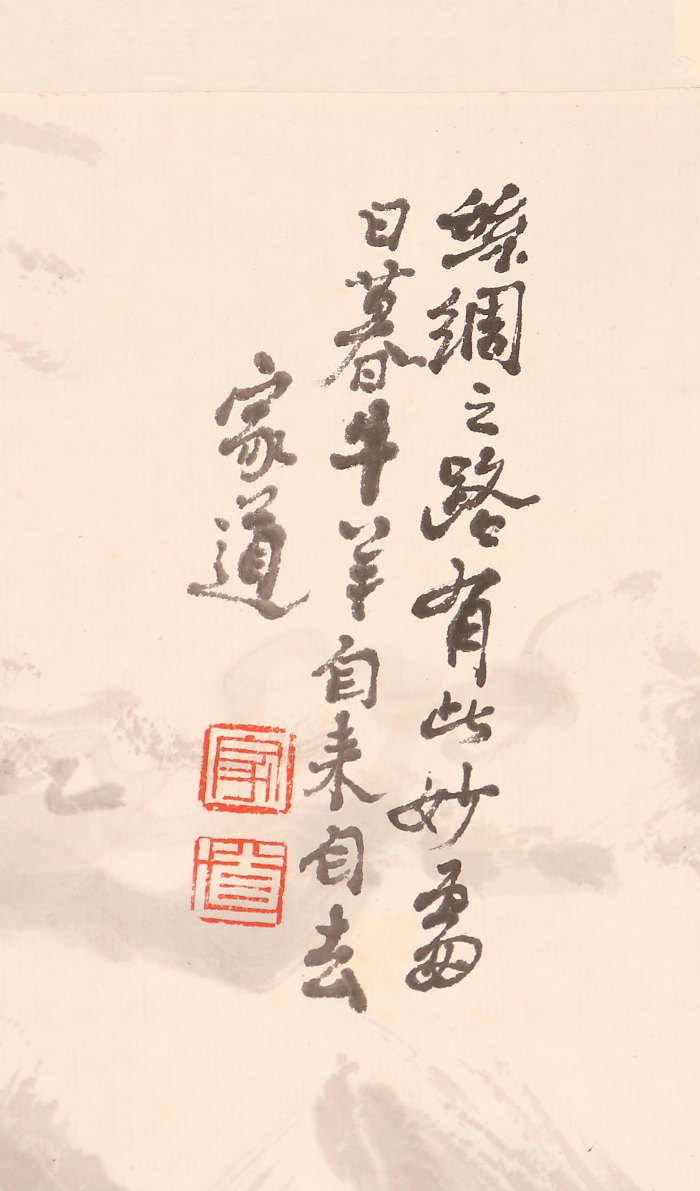 絲綢之路有此妙
日暮牛羊自来自去
家道
家
道